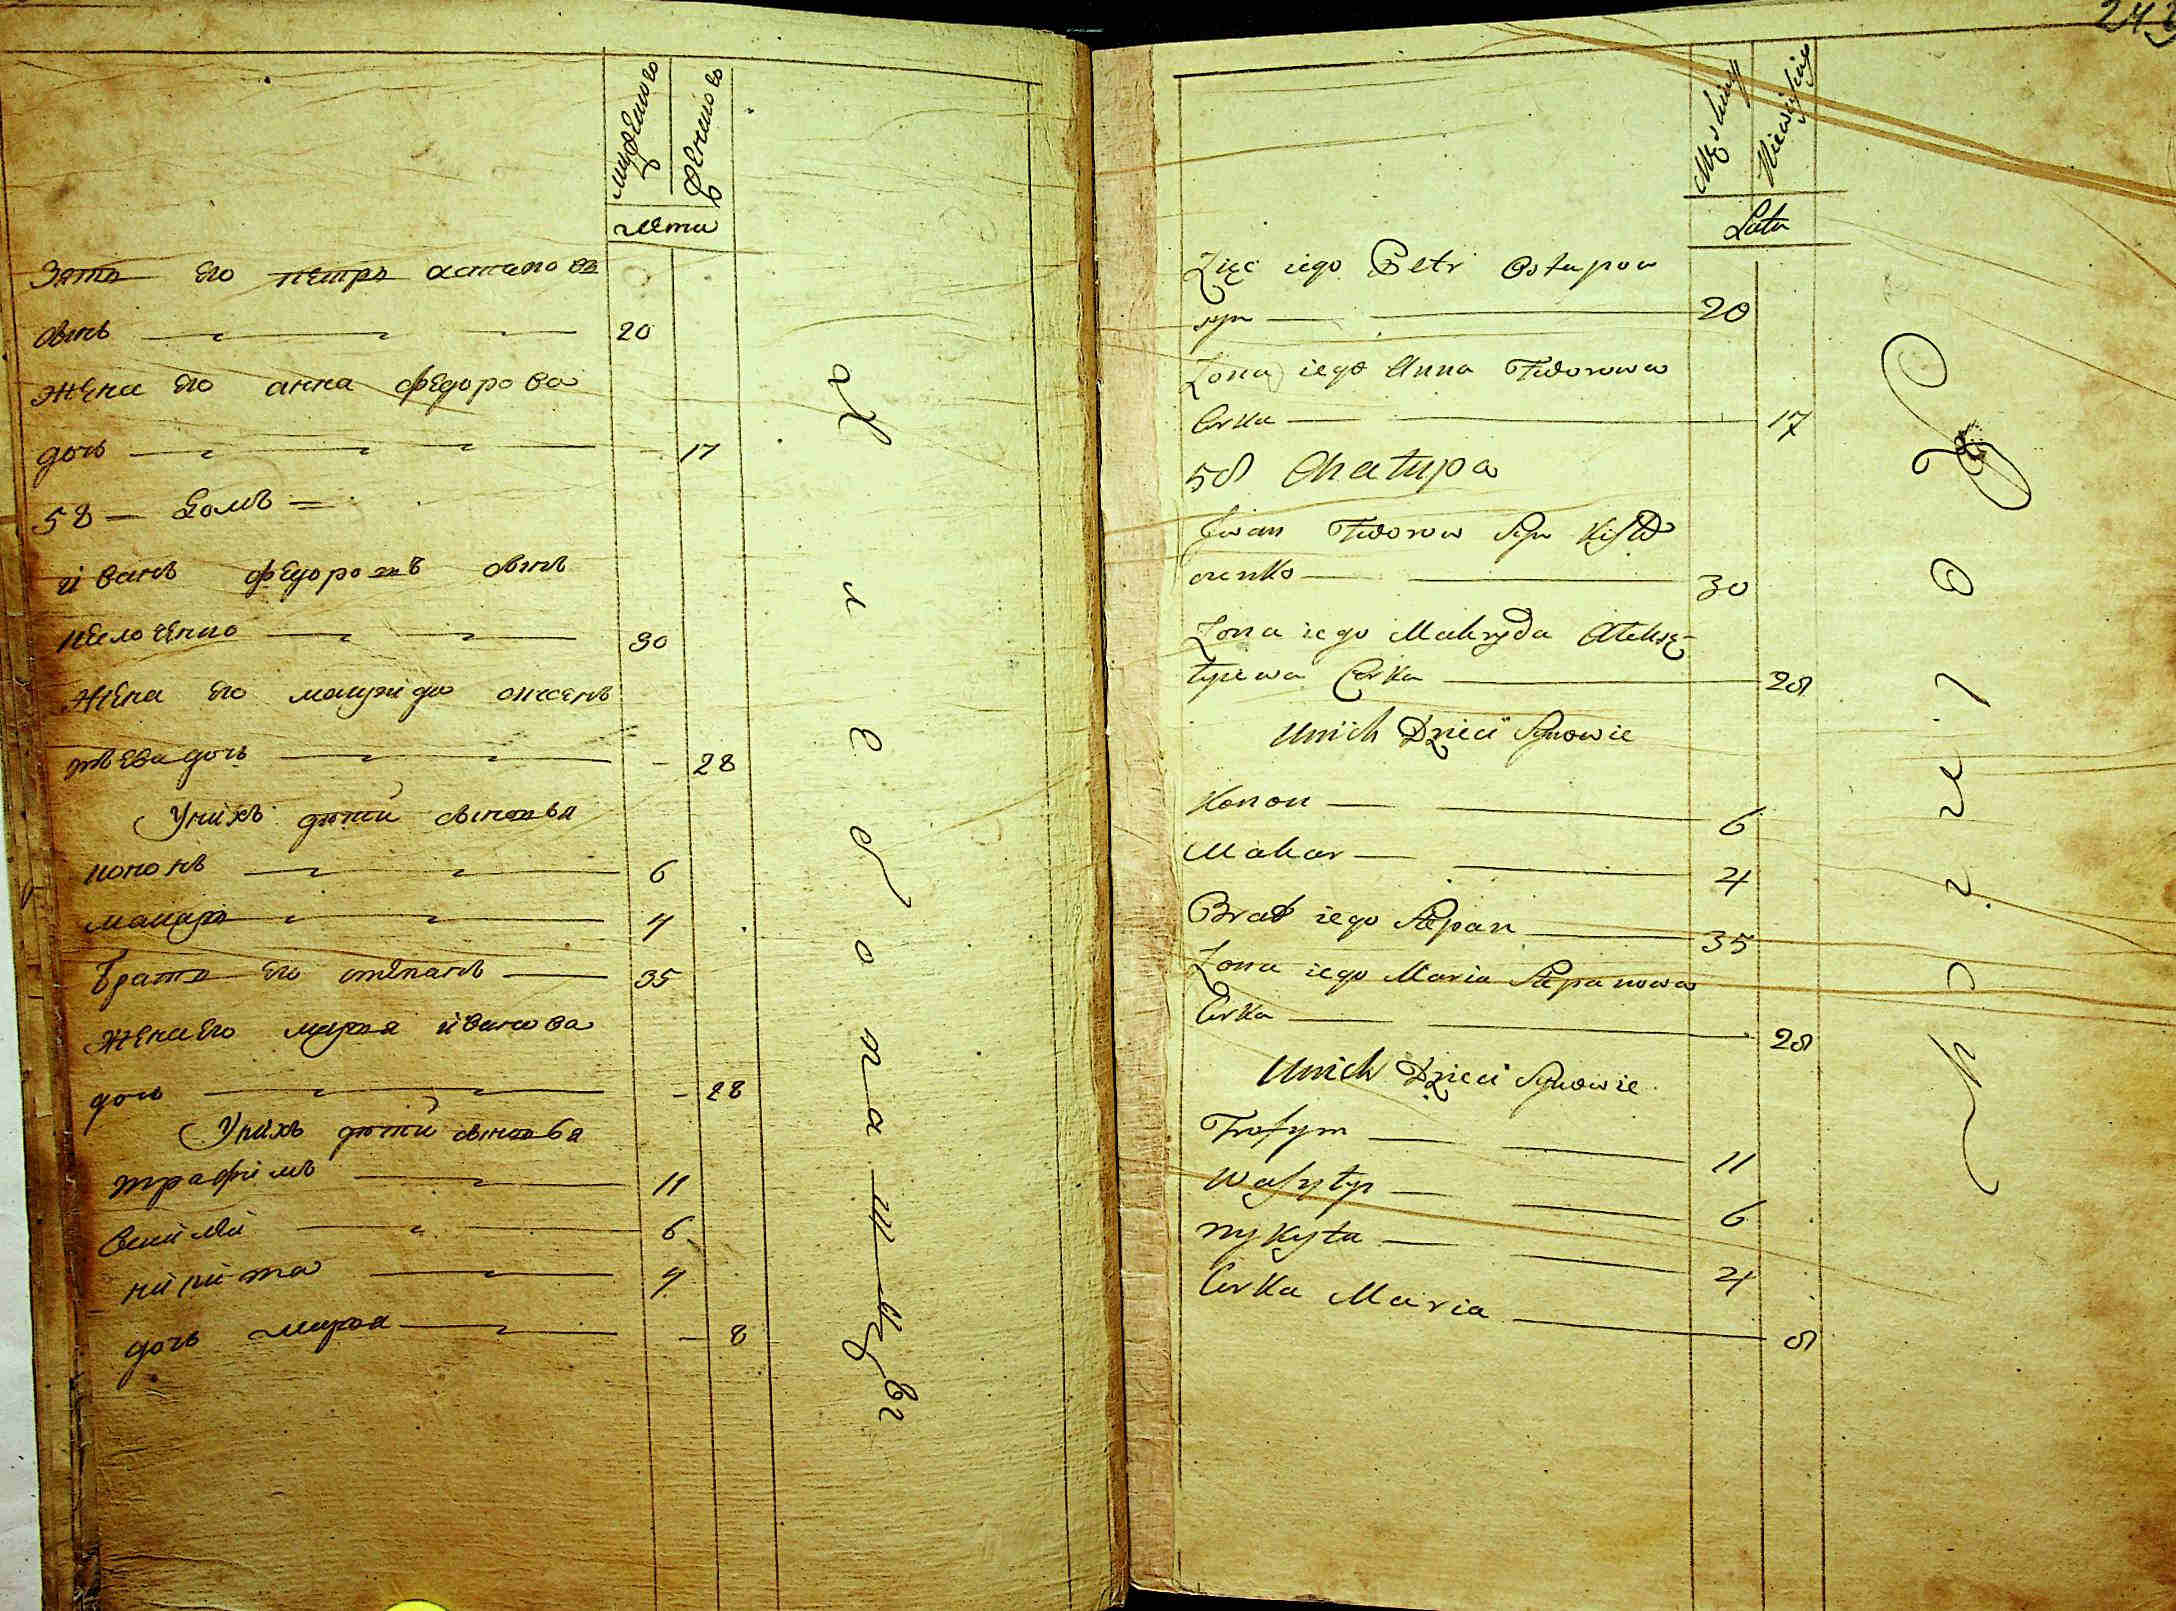 мужескъ
женскъ
лета
Зять его петръ астапов
сынъ 20
жена его анна федорова
дочь 17
58 домъ
иванъ федоровъ сынъ
30
жена его
дочь 28
У них дети сыновья
кононъ 6
макаръ 4
братъ его степанъ 35
жена его марья иванова
дочь 28
У них дети сыновья
трафимъ 11
6
никита 4
дочь марья 8
243
Męskiey
Niewieściey
Lata
Zięc iego Petr Ostapow
syn 20
Zona iego Anna Fedorowa
Corka 17
58 Chałupa
Iwan Fedorow Syn
30
Zona iego Makryda
Corka 28
Unich Dzieci Synowie
Konon 6
Makar 4
Brat iego Stepan 35
Zona iego Maria Stepanowa
Corka 28
Unich Dzieci Synowie
Trofym 11
Wasyłyi 6
Nykyta 4
Corka Maria 8